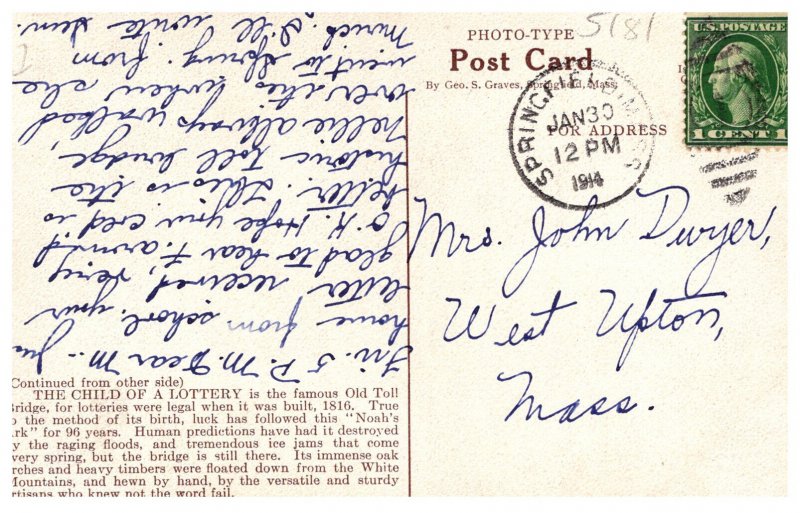 PHOTO-TYPE
5181
Post Card
By Geo. S. Graves, Springfield, Mass.
FOR ADDRESS
U.S. POSTAGE
1 CENT 1
SPRINGFIELD, MASS
JAN 30
12 PM
1914
Mrs. John Dwyer,
West Upton,
Mass.
Fri. 5 P.M. Dear M— Jus
home from school, your
letter received, very
glad to hear F. arrived
O.K. Hope your cold is
better. This is the
historic toll bridge,
Nellie always walked
over this when she
went to Spring. from
Mirick. I'll write Sun.
Continued from other side)
THE CHILD OF A LOTTERY is the famous Old Toll
Bridge, for lotteries were legal when it was built, 1816. True
o the method of its birth, luck has followed this "Noah's
rk" for 96 years. Human predictions have had it destroyed
y the raging floods, and tremendous ice jams that come
very spring, but the bridge is still there. Its immense oak
rches and heavy timbers were floated down from the White
Mountains, and hewn by hand, by the versatile and sturdy
rtisans who knew not the word fail.